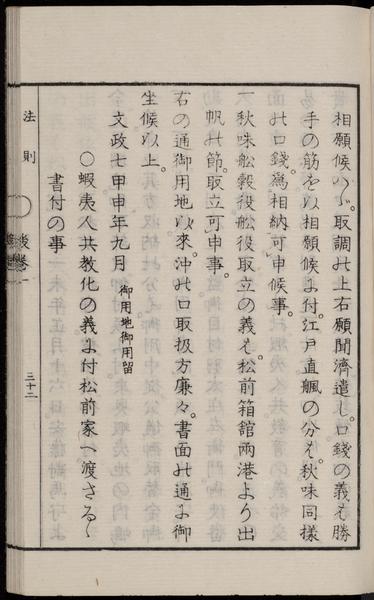 相願候ハヽ取調此上右願聞濟遣し。口錢の義も勝
手の筋を以相願候に付。江戸直颿の分は。秋味同樣
此口錢。爲相納可申候事。
一秋味舩穀役舩役取立の義も。松前箱舘兩港より出
帆此節。取立可申事。
右の通御用地以來。沖の口取扱方廉々。書面此通に御
坐候以上。
文政七甲申年九月　御用地御用留
〇蝦夷人共教化の義に付松前家へ渡さるゝ
書付の事
法則
〇
後卷一
三十二